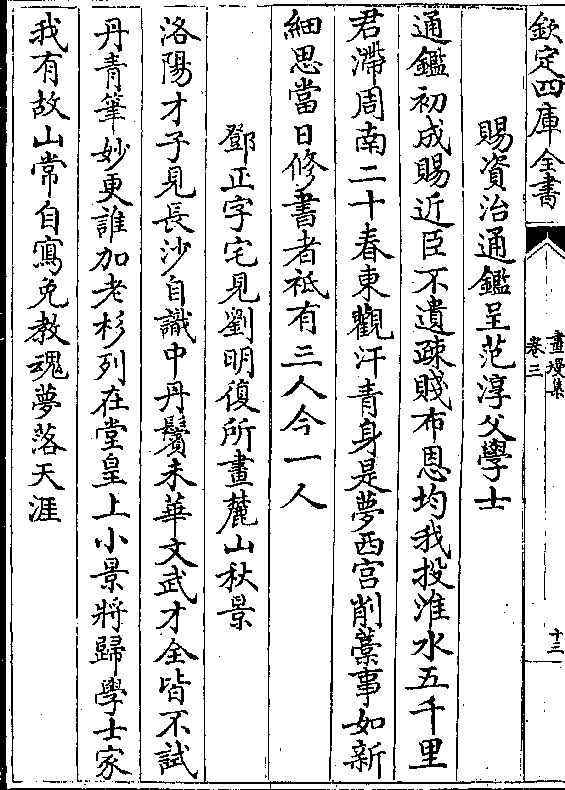 欽定四庫全書
畫墁集
卷三
十三
賜資治通鑑呈范淳父學士
通鑑初成賜近臣不遺疎賤布恩均我投淮水五千里
君滯周南二十春東觀汗青身是夢西宮削藁事如新
細思當日修書者袛有三人今一人
鄧正字宅見劉明復所畫麓山秋景
洛陽才子見長沙自識中丹鬢未華文武才全皆不試
丹青筆妙更誰加老杉列在堂皇上小景將歸學士家
我有故山常自寫免教魂夢落天涯